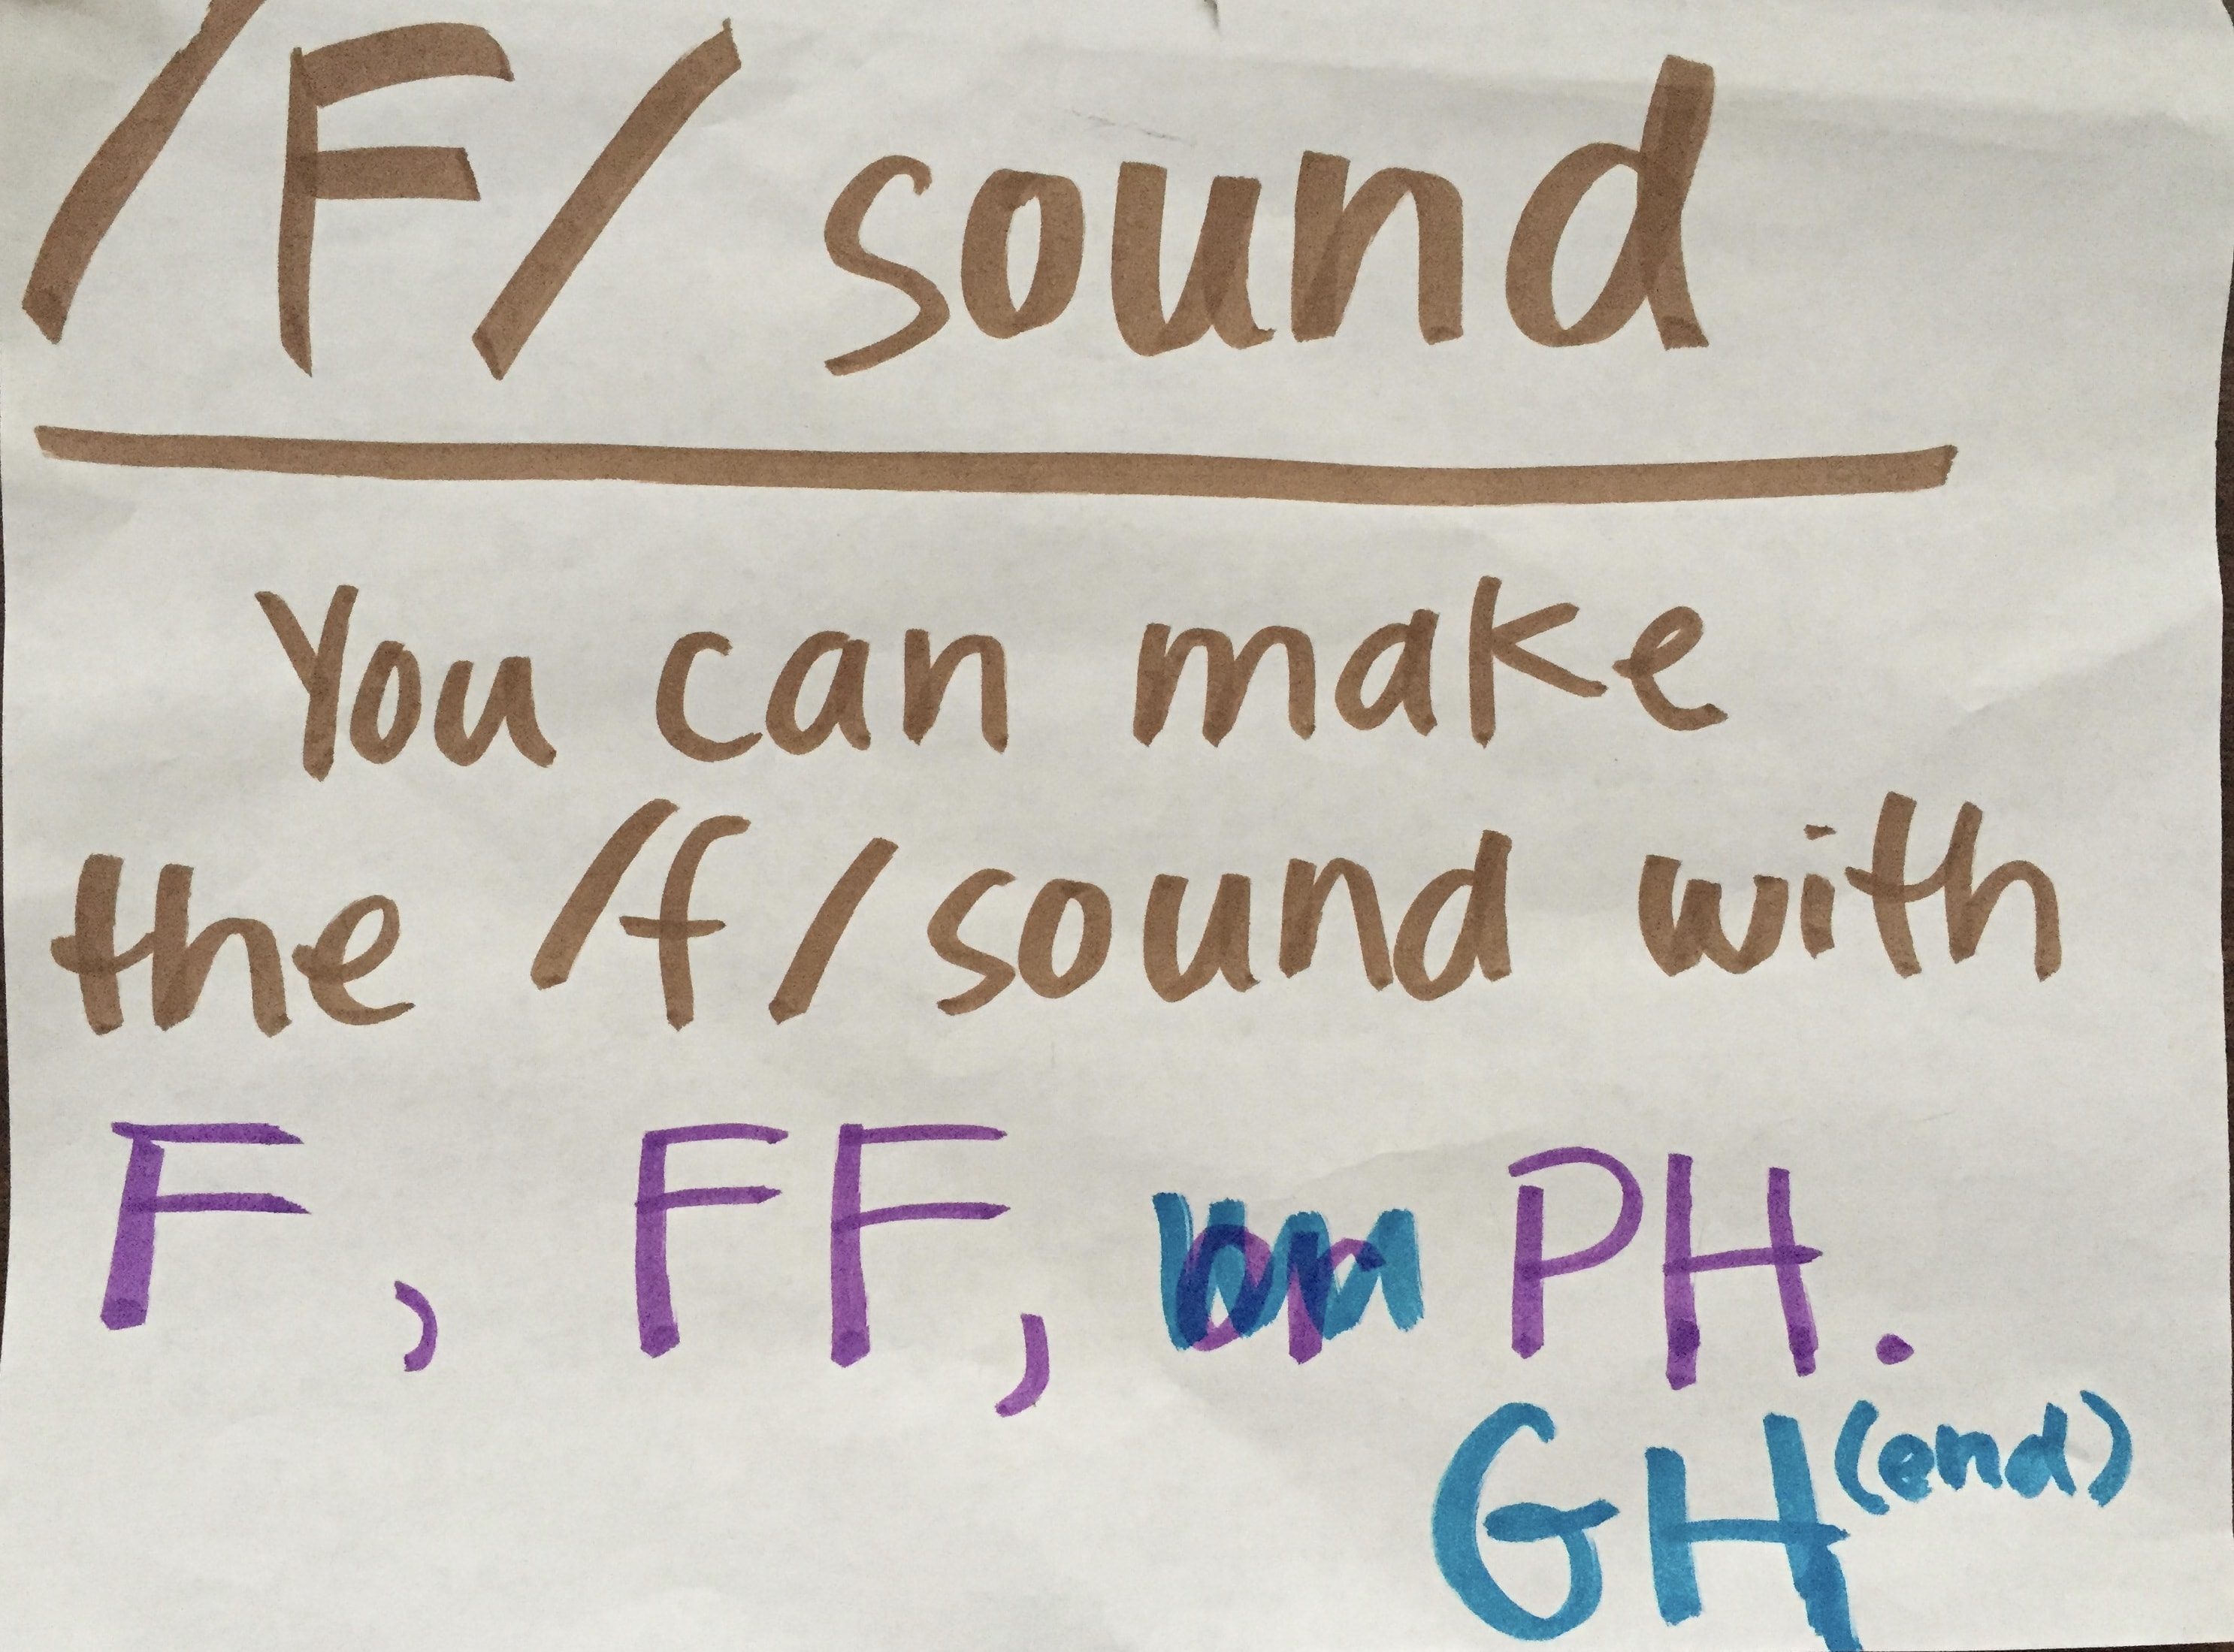 /F/ sound
You can make
the /f/ sound with
F, FF, or PH.
GH (end)